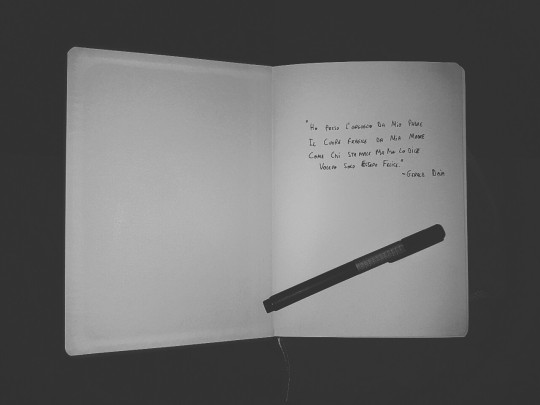 "Ho preso l'orgoglio da mio padre
Il cuore fragile da mia madre
Come chi sta male ma non lo dice
Volevo solo essere felice"
-Gerald